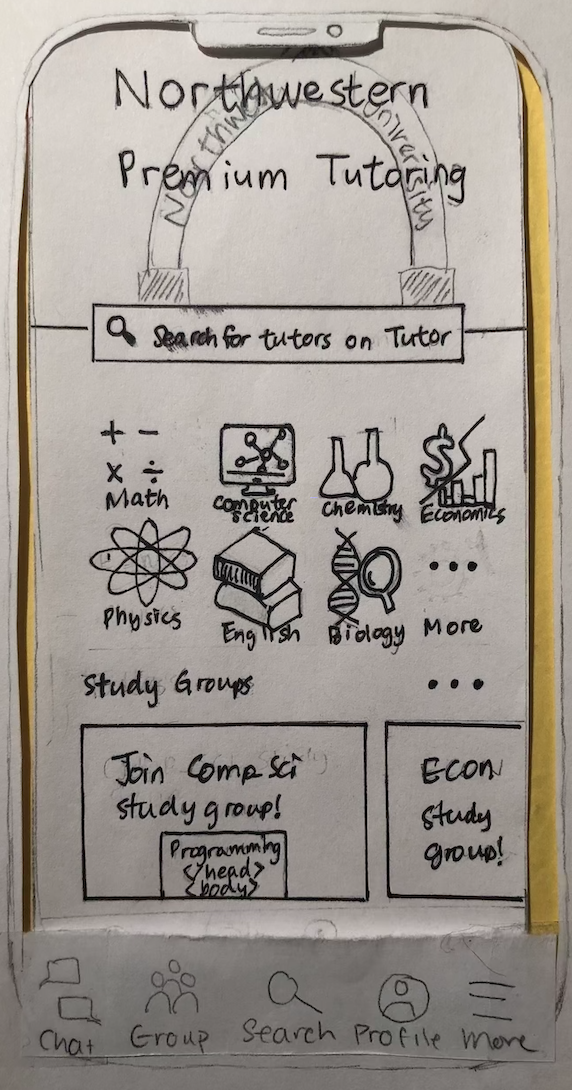 Northwestern
Northwe University
Premium Tutoring
Search for tutors on Tutor
+ -
x ÷
Math
Computer
Science
Chemistry
$
Economics
Physics
English
Biology
More
Study Groups
Join Comp Sci
study group!
Programming
</head>
<body>
ECON
study
group!
Chat
Group
Search
Profile
More